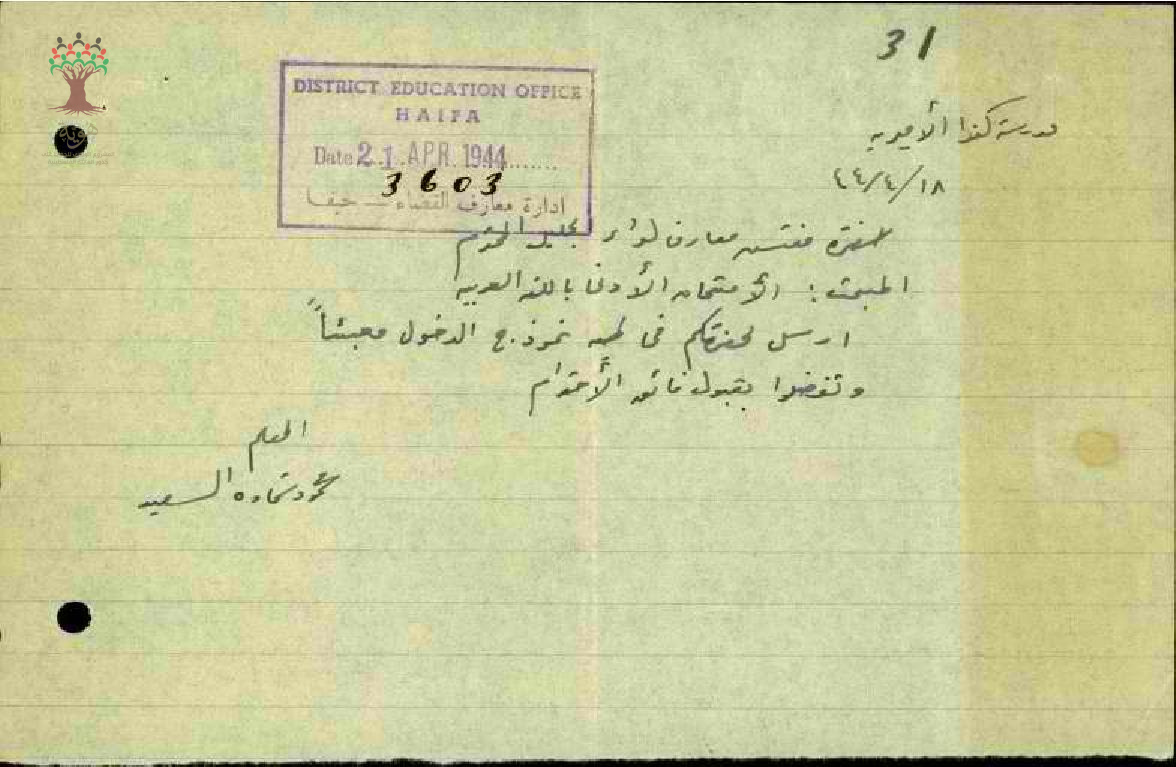 31
DISTRICT EDUCATION OFFICE
HAIFA
Date 21 APR 1944
3603
ادارة معارف القضاء — حيفا
مدرسة كندا الأميرية
٤٤/٤/١٨
حضرة مفتش معارف لواء الجليل المحترم
المبحث: الأمتحان الأدنى باللغة العربيه
ارسل لحضرتكم في طيه نموذج الدخول معبئاً
وتفضلوا بقبول فائق الأحترام
المعلم
محمود السعيد